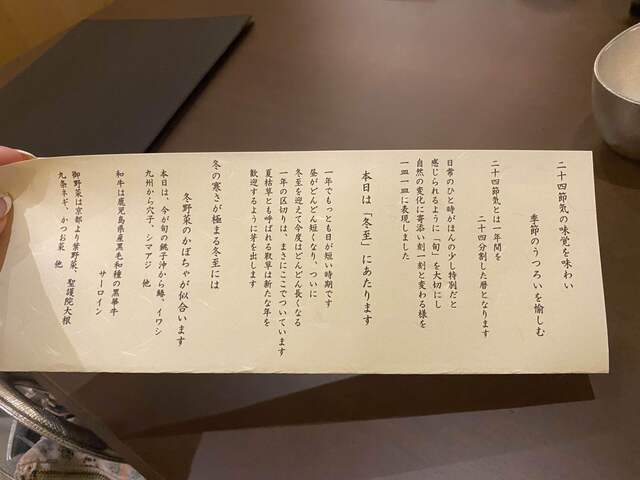 二十四節気の味覚を味わい
季節のうつろいを愉しむ
二十四節気とは一年間を
二十四分割した暦となります
日常のひと時がほんの少し特別だと
感じられるように「旬」を大切にし
自然の変化に寄添い刻一刻と変わる様を
一皿一皿に表現しました
本日は「冬至」にあたります
一年でもっとも日が短い時期です
昼がどんどん短くなり、ついに
冬至を迎えて今度はどんどん長くなる
一年の区切りは、まさにここでついています
夏枯草とも呼ばれる靫草は新たな年を
歓迎するように芽を出します
冬の寒さが極まる冬至には
冬野菜のかぼちゃが似合います
本日は、今が旬の銚子沖から鰆、イワシ
九州から穴子、シマアジ 他
和牛は鹿児島県産黒毛和種の黒華牛
サーロイン
御野菜は京都より紫野菜、聖護院大根
九条ネギ、かつお菜 他